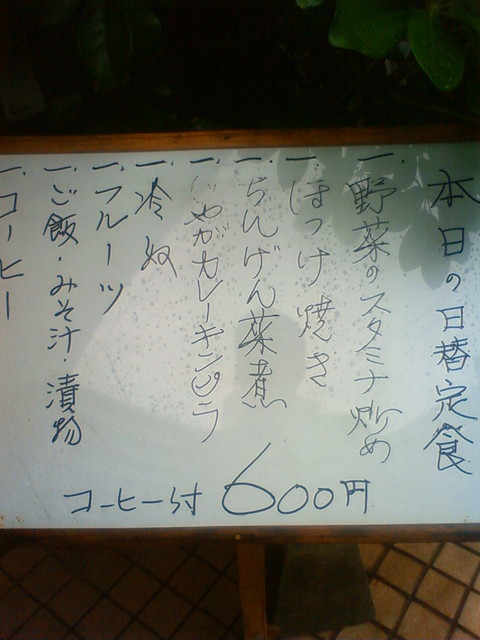 本日の日替定食
一.野菜のスタミナ炒め
一.ほっけ焼き
一.ちんげん菜煮
一.じゃがカレーキンピラ
一.冷奴
一.フルーツ
一.ご飯・みそ汁・漬物
一.コーヒー
コーヒー付 600円